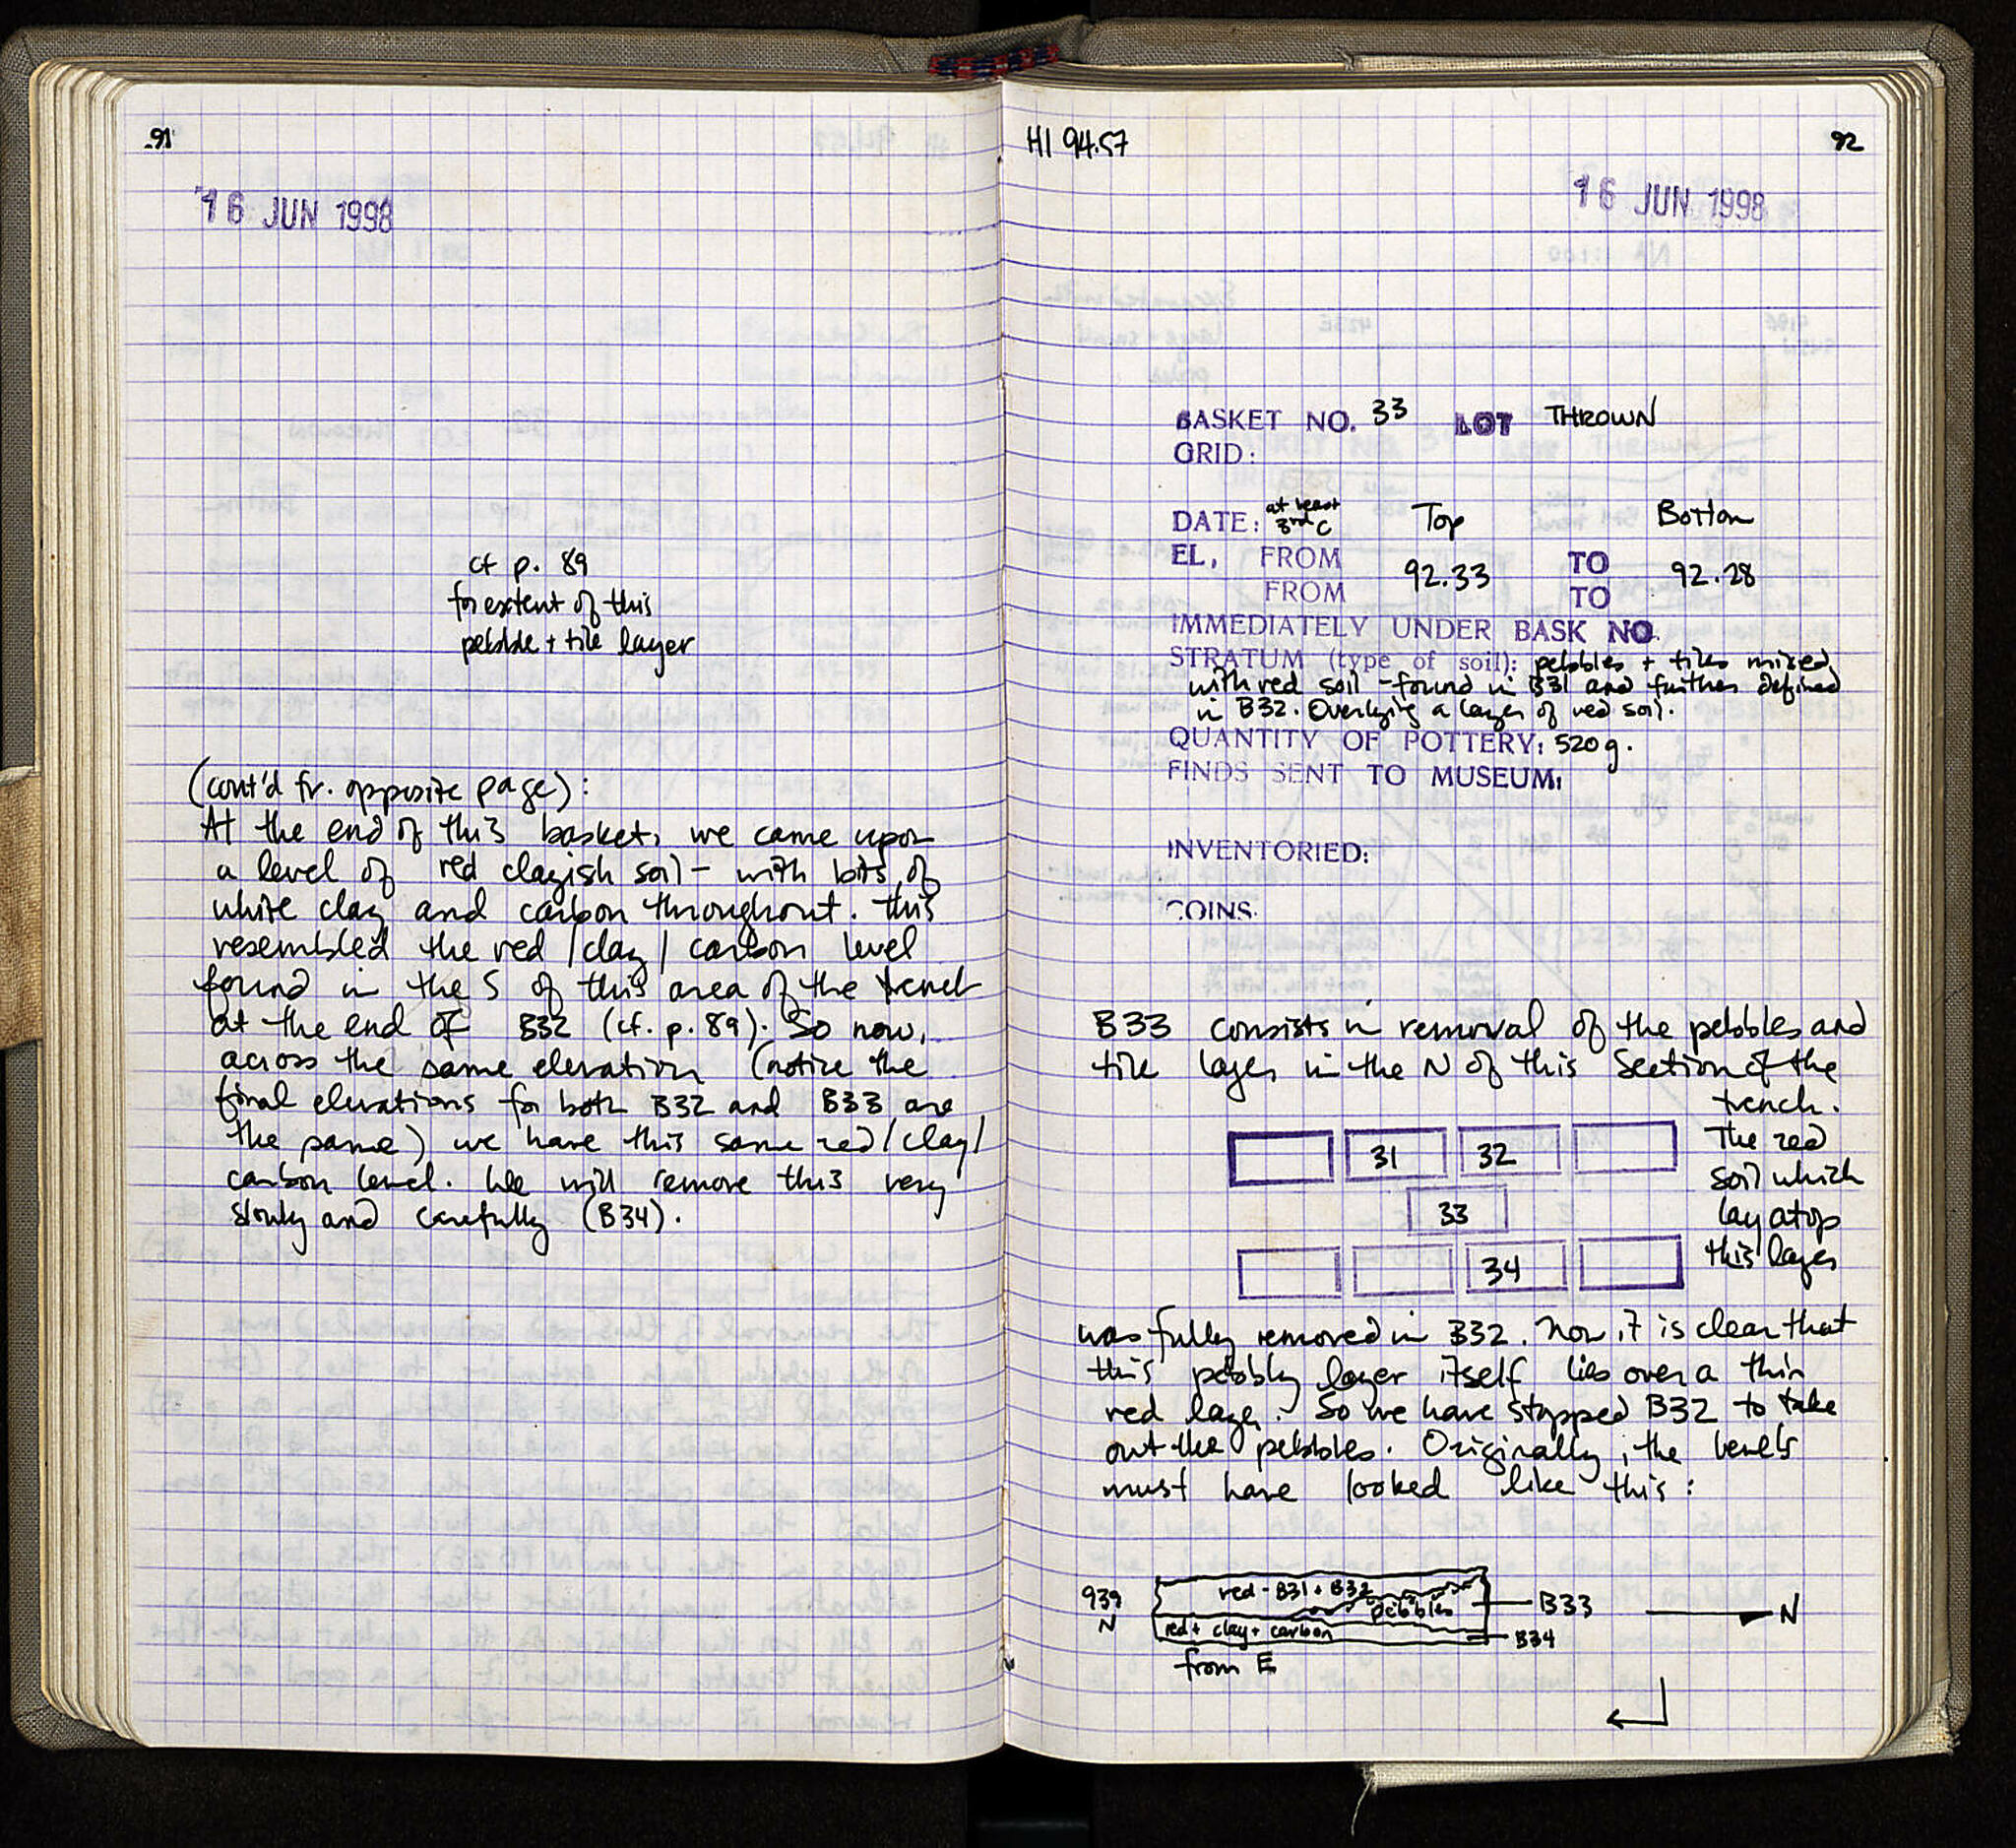 91
16 JUN 1998
cf p. 89
for extent of this
pebble + tile layer
(cont'd fr. opposite page):
At the end of this basket, we came upon
a level of red clayish soil - with bits of
white clay and carbon throughout. This
resembled the red/clay/carbon level
found in the S of this area of the trench
at the end of B32 (cf. p. 89). So now,
across the same elevation (notice the
final elevations for both B32 and B33 are
the same) we have this same red/clay/
carbon level. We will remove this very
slowly and carefully (B34).
HI 94.57
92
16 JUN 1998
BASKET NO. 33 LOT THROWN
GRID:
DATE: at least 3rd C Top Bottom
EL. FROM 92.33 TO 92.28
FROM TO
IMMEDIATELY UNDER BASK NO.
STRATUM (type of soil): pebbles + tiles mixed
with red soil - found in B31 and further defined
in B32. Overlying a layer of red soil.
QUANTITY OF POTTERY: 520 g.
FINDS SENT TO MUSEUM:
INVENTORIED:
COINS.
B33 consists in removal of the pebbles and
tile layer in the N of this section of the
trench.
The red
soil which
lay atop
this layer
31 32
33
34
was fully removed in B32. Now it is clear that
this pebbly layer itself lies over a thin
red layer. So we have stopped B32 to take
out the pebbles. Originally, the levels
must have looked like this:
939
N
red - B31 + B32
pebbles
B33
N
red + clay + carbon
B34
from E